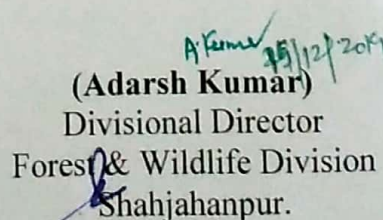 A. Kumar 15/12/2019
(Adarsh Kumar)
Divisional Director
Forest & Wildlife Division
Shahjahanpur.